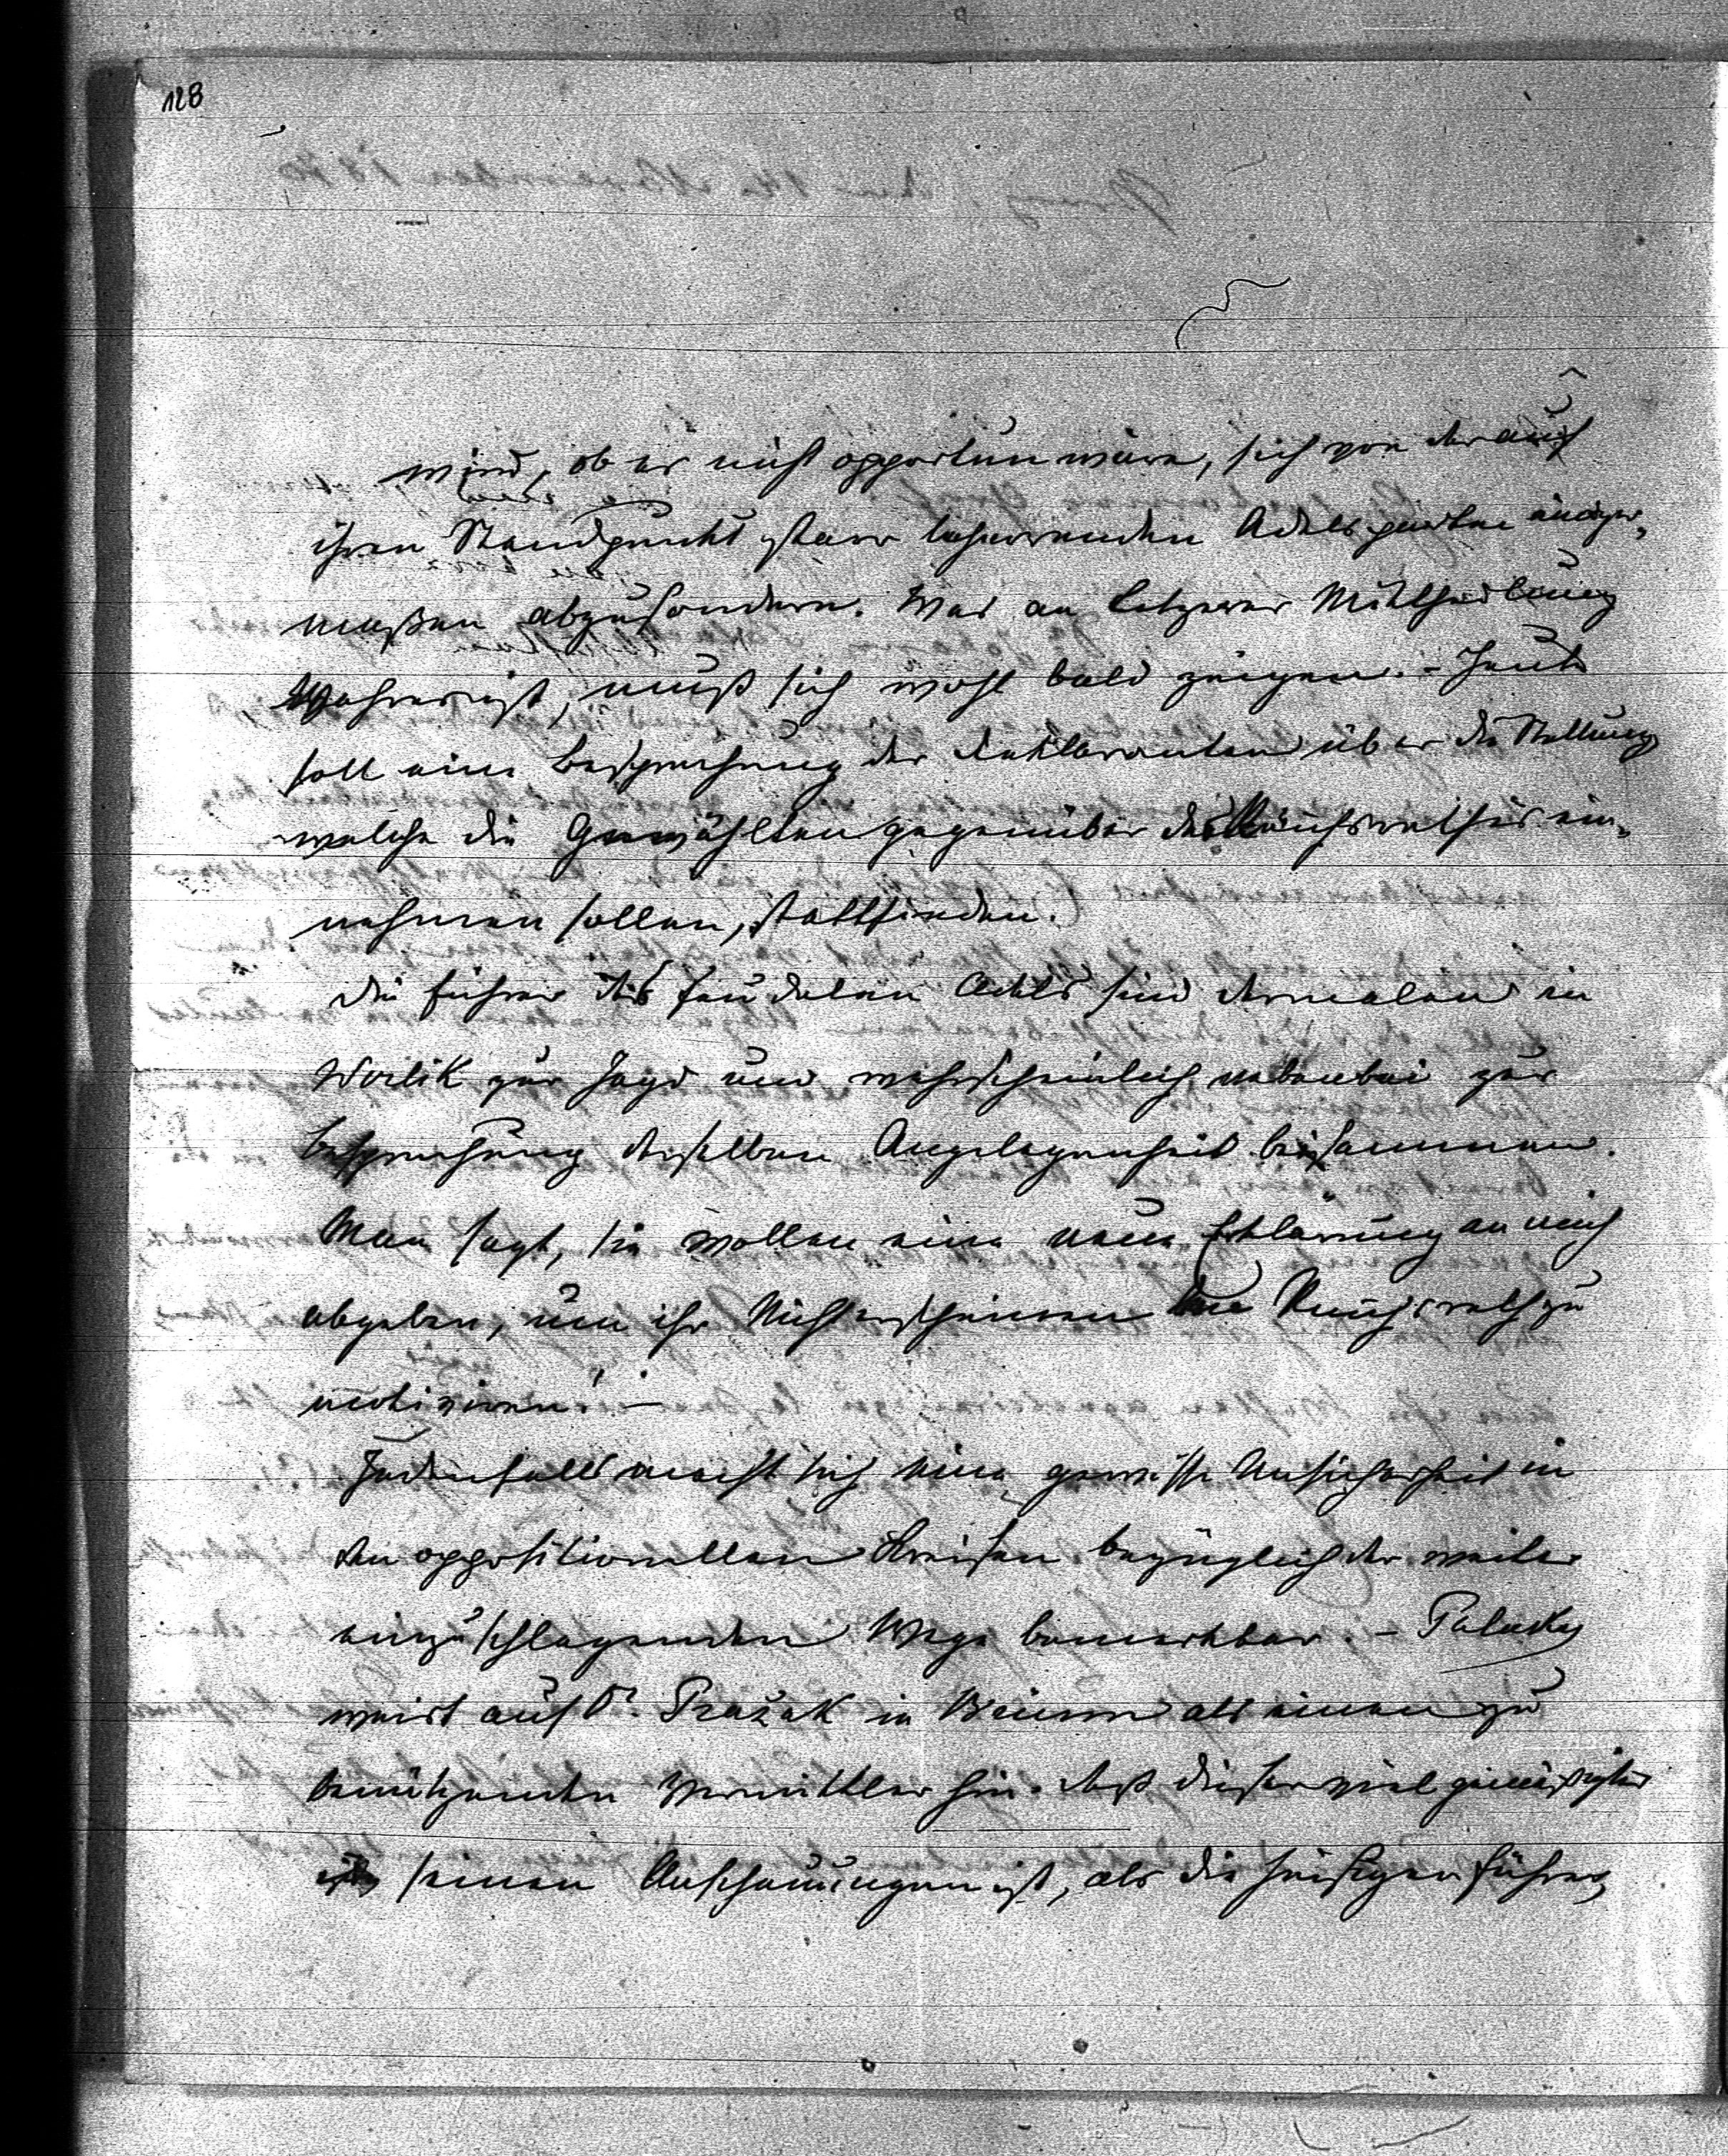 128
wird, ob es nicht opportun wäre, sich von der auf
ihren Standpunkt starr beharrenden Adelspartei einiger-
maßen abzusondern. Was an letzerer Mittheilung
Wahres ist, muß sich wohl bald zeigen. – Heute
soll eine Besprechung der Deklaranten über die Stellung
welche die Gewählten gegenüber des Reichsrathes ein-
nehmen sollen, stattfinden.
Die Führer des feudalen Adels sind dermalen in
Worlik zur Jagd und wahrscheinlich nebenbei zur
Besprechung derselben Angelegenheit beisammen.
Man sagt, sie wollen eine neue Erklärung an mich
abgeben, um ihr Nichterscheinen im Reichsrath zu
motiviren! –
Jedenfalls macht sich eine gewisse Unsicherheit in
den oppositionellen Kreisen bezüglich der weiter
einzuschlagenden Wege bemerkbar. – Palacky
weist auf Dr. Pražak in Brünn als einen zu
benützenden Vermittler hin. Daß dieser viel gemäßigter
in seinen Anschauungen ist, als die hiesigen Führer,